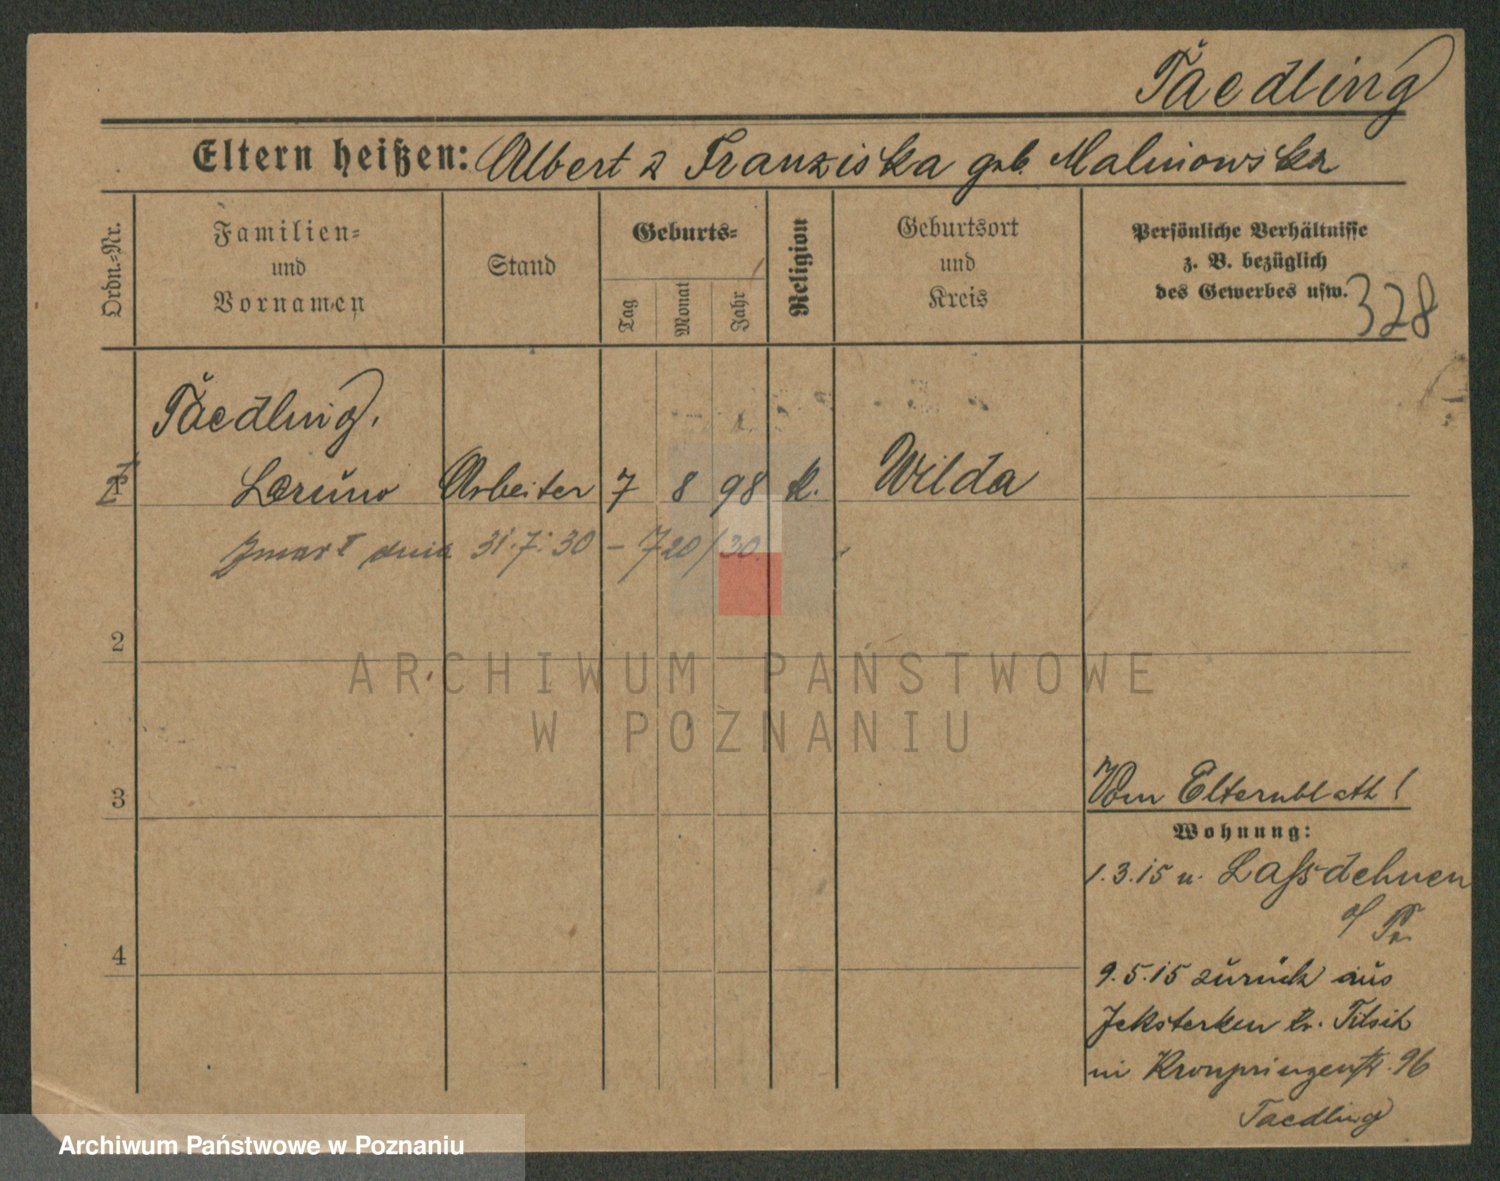 Taedling
Eltern heißen: Albert & Franziska geb. Malinowska
Ordn.=Nr.
Familien=
und
Vornamen
Stand
Geburts=
Tag
Monat
Jahr
Religion
Geburtsort
und
Kreis
Persönliche Verhältnisse
z. B. bezüglich
des Gewerbes usw.
328
Taedling.
1 Arbeiter 7 8 98 k. Wilda
Zmarł dnia 31.7.30 – 720/30.
2
3
4
Vom Elternblatt!
Wohnung:
1.3.15 n. Laßdehnen
o/Pr.
9.5.15 zurück aus
Jeksterken Kr. Tilsit
in Kronprinzenstr. 96
Taedling
ARCHIWUM PAŃSTWOWE
W POZNANIU
Archiwum Państwowe w Poznaniu